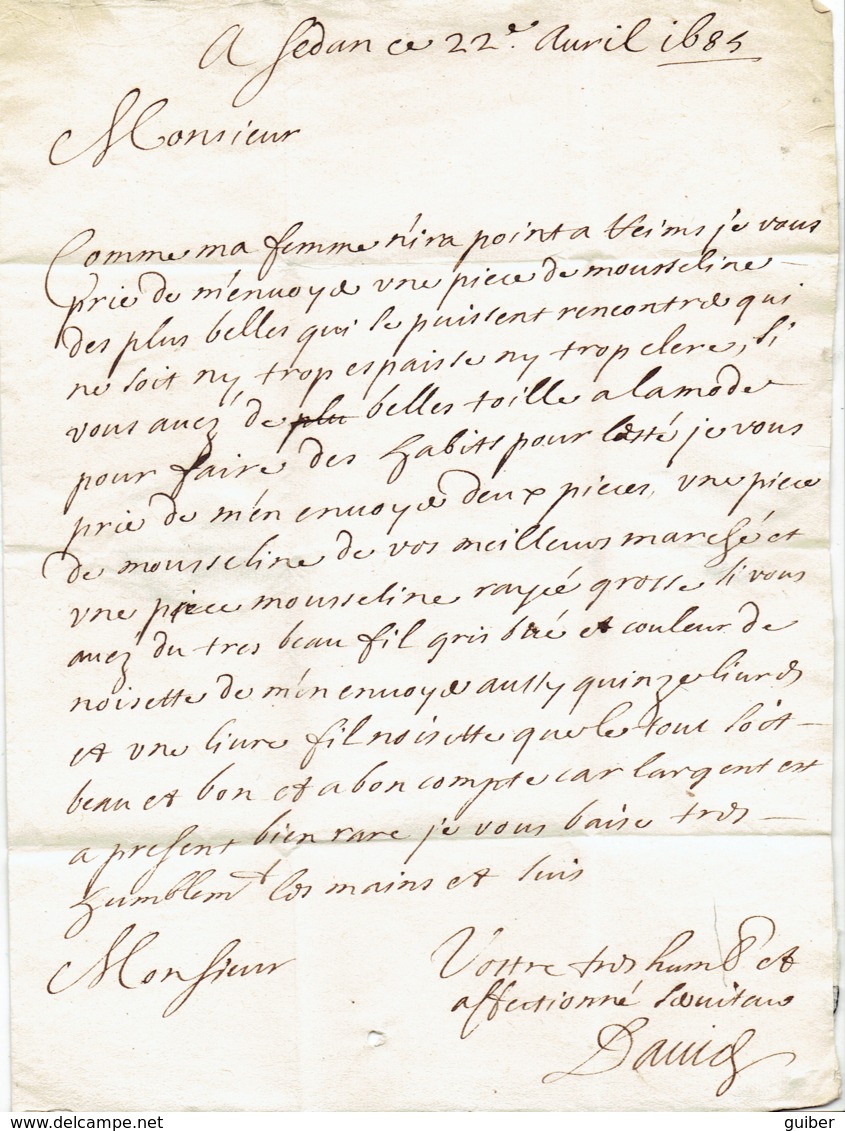 A Sedan ce 22e Auril 1685
Monsieur
Comme ma femme n'ira point a Reims je vous
prie de m'enuoyer vne piece de mousseline
des plus belles qui se puissent rencontrer qui
ne soit ny trop espaisse ny trop clere, si
vous auez de plu belles toille a la mode
pour faire des habits pour lesté je vous
prie de m'en enuoyer deux pieces, vne piece
de mousseline de vos meilleurs marché et
vne piece mousseline rayé grosse si vous
auez du tres beau fil gris et couleur de
noisette de m'en enuoyer aussy quinze liures
et vne liure fil noisette que le tout soit
beau et bon et a bon compte car largent est
a present bien rare je vous baise tres
humblemt les mains et suis
Monsieur
Vostre tres humb et
affectionné seruiteur
Dauid
guiber